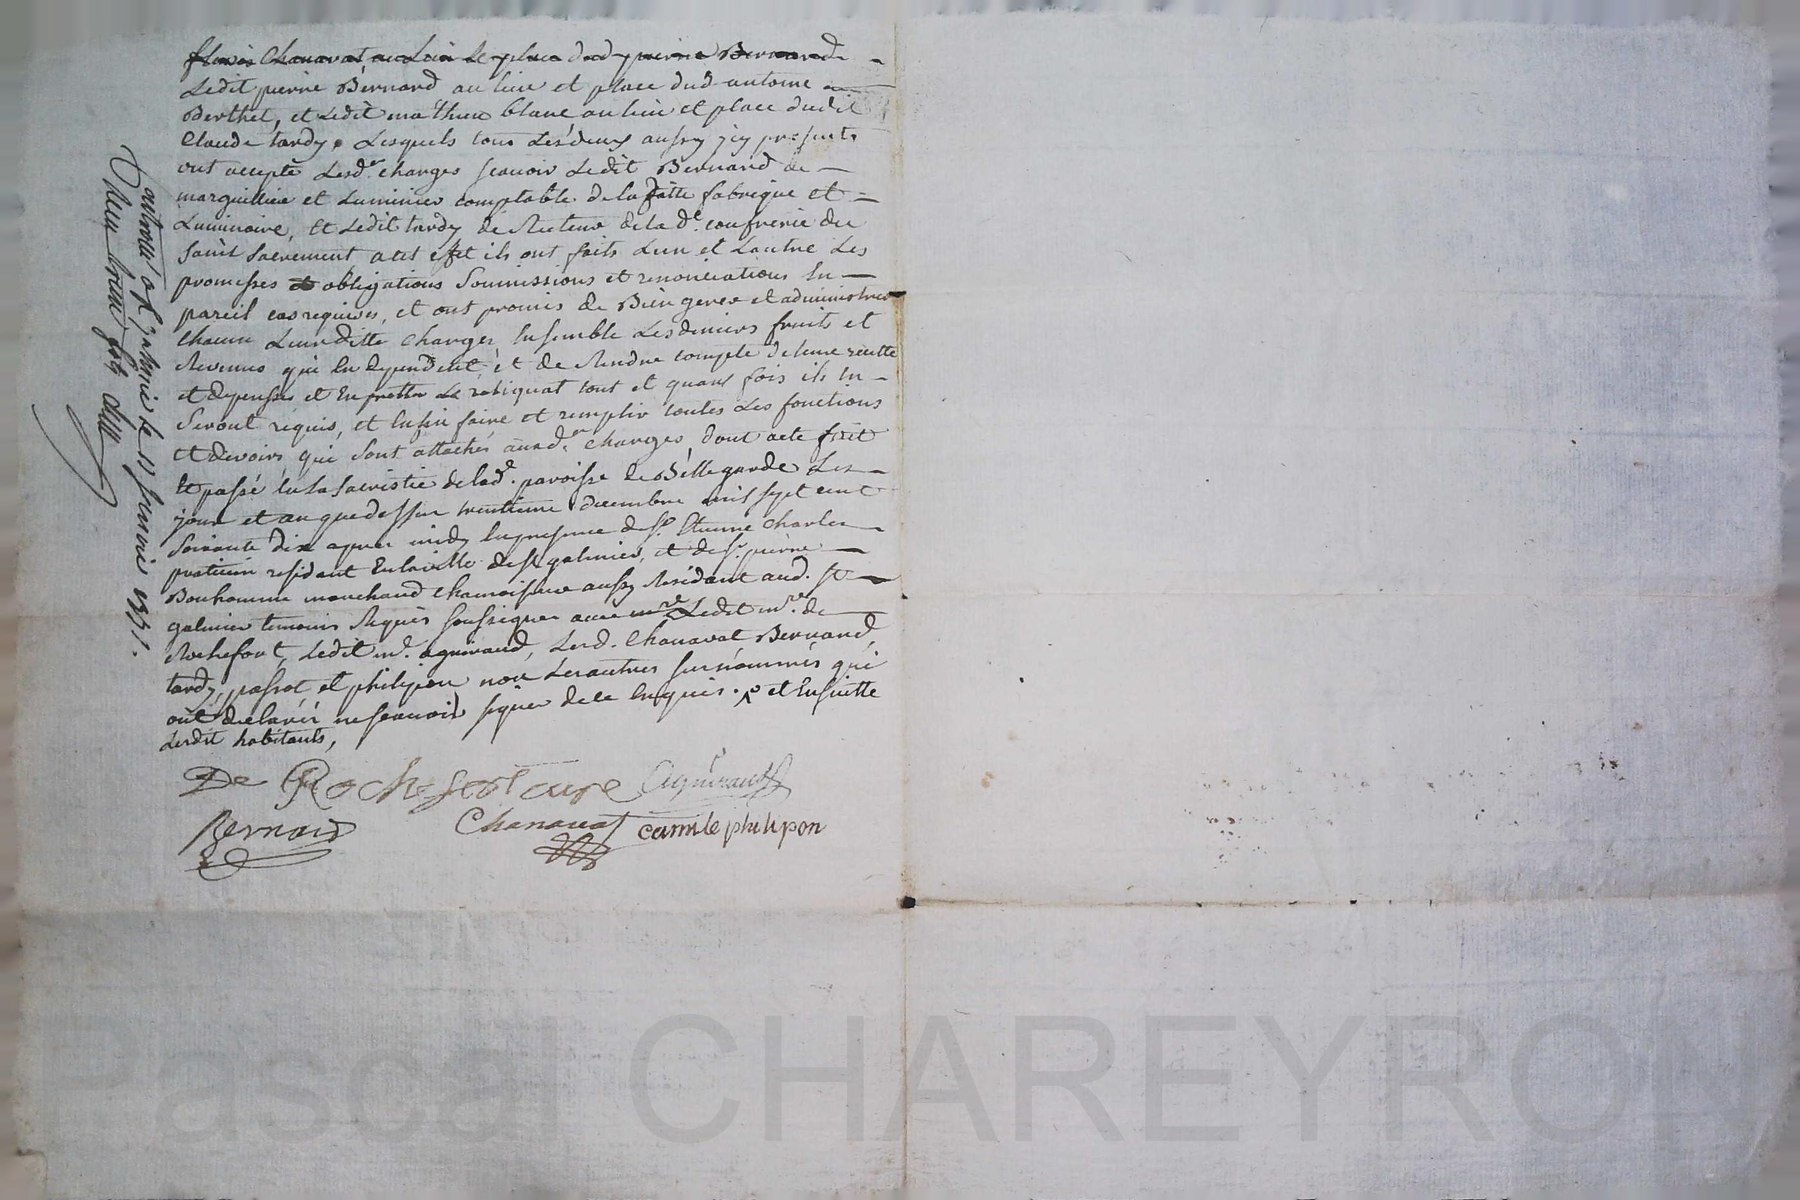 fleurie Chanavat au lieu et place dud pierre Bernard
Ledit pierre Bernard au lieu et place dud antoine
Berthet, et Ledit mathieu blanc au lieu et place dudit
Claude tardy. Lesquels tous Lesdeux aussy jcy presents
ont accepté Lesd. charges scauoir Ledit Bernard de
marguillier et Luminier comptable de laditte fabrique et
Luminaire, et Ledit tardy de Recteur de la de. confrerie du
saint sacrement a cet effet ils ont faits Lun et Lautre Les
promesses et obligations soumissions et renonciations En
pareil cas requises, et ont promis de Bien gerer et administrer
chacun Leurditte charges, Ensemble Lesdeniers fruits et
Revenus qui En dependent, et de Rendre compte deleur recette
et depenses et En prester Le reliquat tout et quant fois ils En
seront requis, et Enfin faire et remplir toutes Les fonctions
et devoirs qui sont attachés auxd. charges, dont acte fait
et passé En la sacristie de lade. paroisse de Bellegarde Les
jour et an quedessus trentieme decembre mil sept cent
soixante dix apres midy En presence de sr. Etienne Charles
praticien residant En laville de st galmier, et de sr. pierre
Bonhomme marchand chamoiseur aussy Residant aud. st
galmier temoins Requis soussignes avec Ledit mre. de
Rochefort, Ledit mr. aguiraud, Lesd. Chanavat Bernard,
tardy, passot et philipon non Lesautres surnommés qui
ont declarés ne scauoir signer de ce Enquis. et Ensuitte
Lesdit habitants,
De Rochefort curé Aguiraud
Bernard Chanavat camile philipon
controllé a st galmier le janvier 1771.